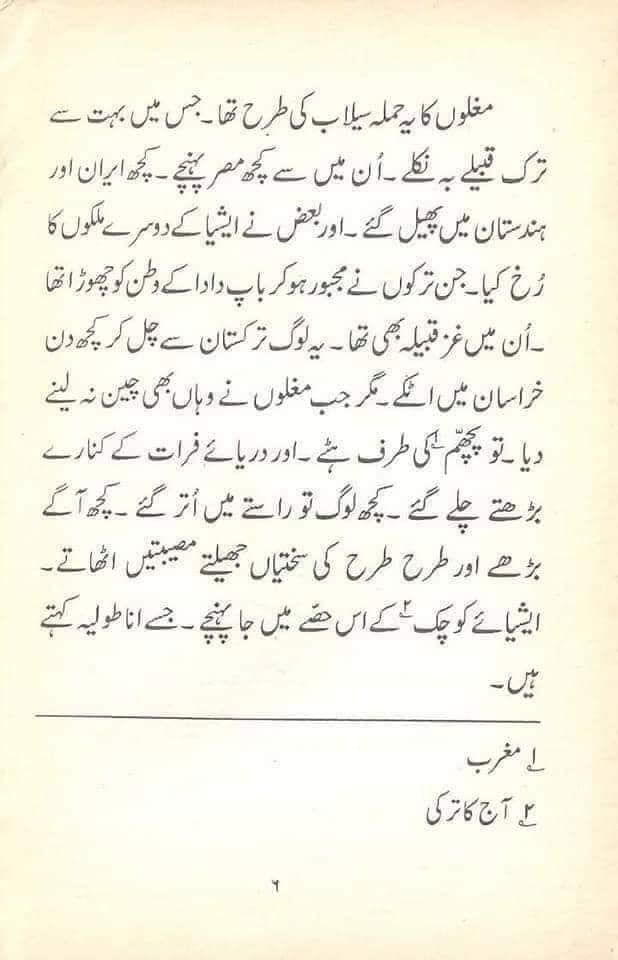 مغلوں کا یہ حملہ سیلاب کی طرح تھا۔ جس میں بہت سے
ترک قبیلے بہ نکلے۔ اُن میں سے کچھ مصر پہنچے۔ کچھ ایران اور
ہندستان میں پھیل گئے۔ اور بعض نے ایشیا کے دوسرے ملکوں کا
رُخ کیا۔ جن ترکوں نے مجبور ہو کر باپ دادا کے وطن کو چھوڑا تھا
۔ اُن میں غز قبیلہ بھی تھا۔ یہ لوگ ترکستان سے چل کر کچھ دن
خراسان میں اٹکے۔ مگر جب مغلوں نے وہاں بھی چین نہ لینے
دیا۔ تو پچھّم ۱؎ کی طرف ہٹے۔ اور دریائے فرات کے کنارے
بڑھتے چلے گئے۔ کچھ لوگ تو راستے میں اُتر گئے۔ کچھ آگے
بڑھے اور طرح طرح کی سختیاں جھیلتے مصیبتیں اٹھاتے۔
ایشیائے کوچک ۲؎ کے اس حصّے میں جا پہنچے۔ جسے اناطولیہ کہتے
ہیں۔
۱؎ مغرب
۲؎ آج کا ترکی
۶